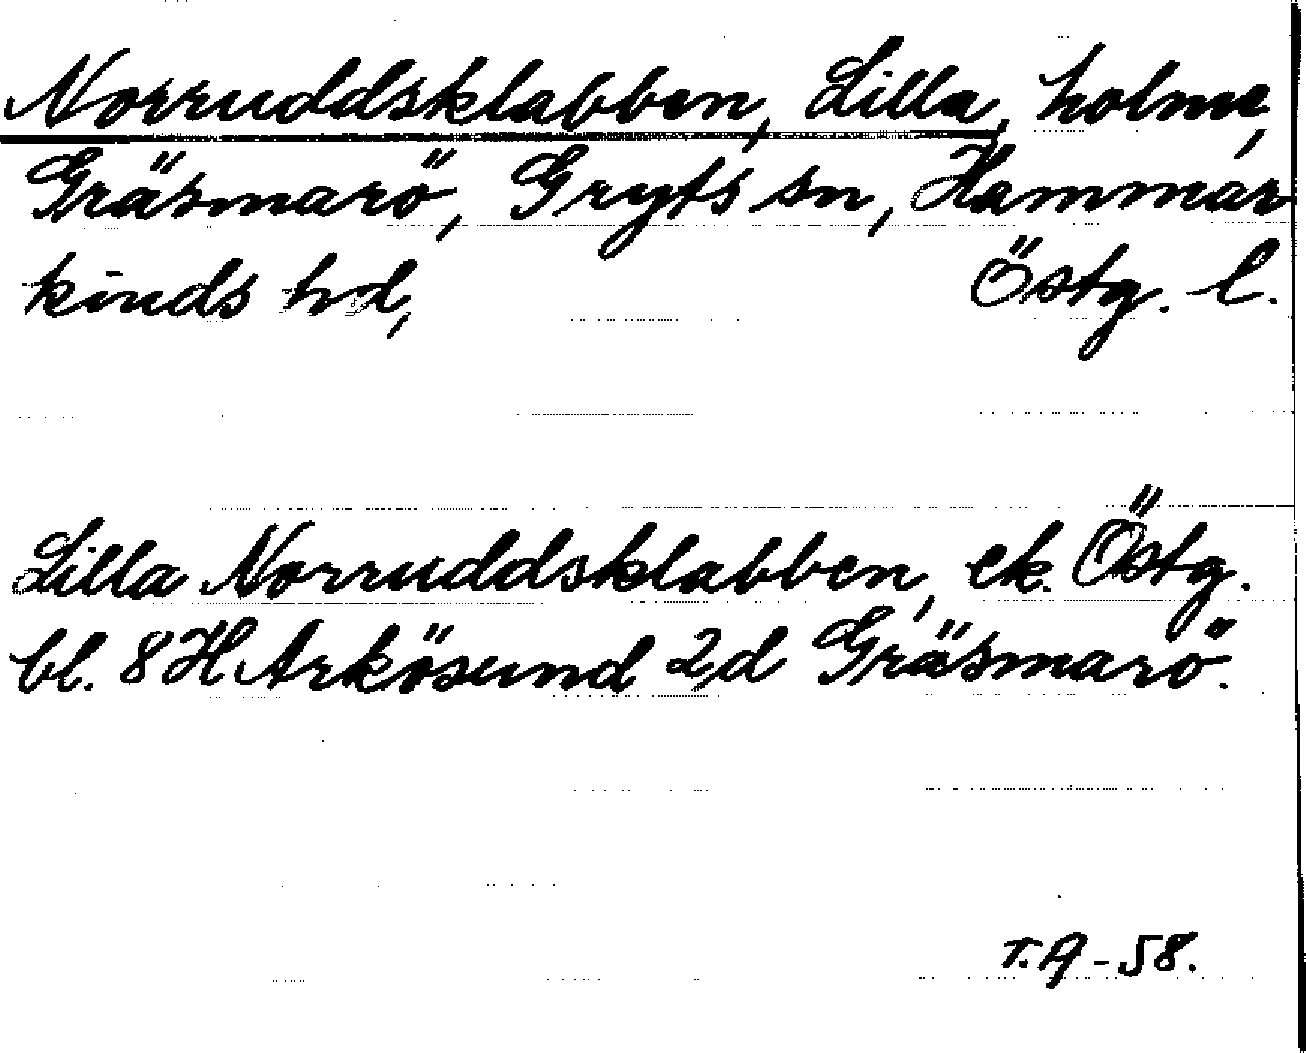 Norruddsklabben, Lilla, holme,
Gräsmarö, Gryts sn, Hammar
kinds hd, Östg. l.
Lilla Norruddsklabben, ek. Östg.
bl. 8H Arkösund 2d Gräsmarö.
T.A-58.